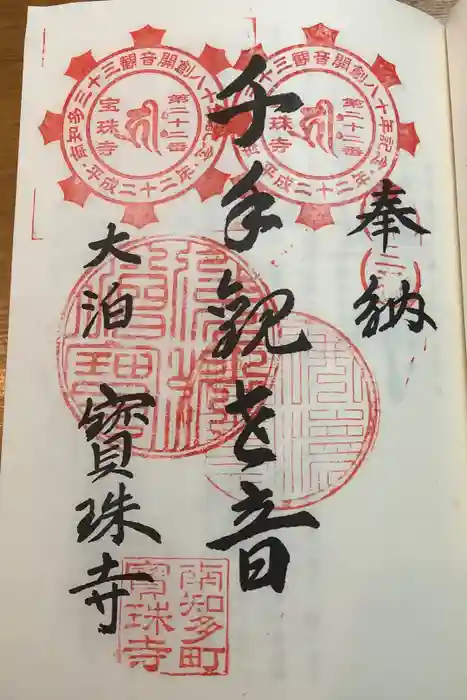 奉納
千手観世音
大泊 寶珠寺
南知多三十三観音開創八十年記念・平成二十二年
第二十二番
宝珠寺
南知多三十三観音開創八十年記念・平成二十二年
第二十二番
宝珠寺
南知多町
寶珠寺